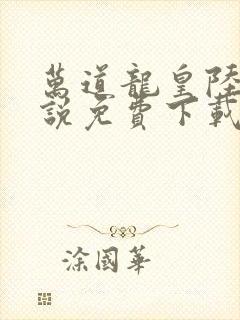 萬道龍皇陸
說免費下載
涂國華